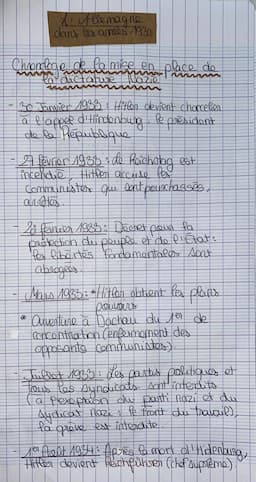 L'Allemagne
dans les années 1930
Chronologie de la mise en place de
la dictature Nazie
- 30 Janvier 1933 : Hitler devient chancelier
à l'appel d'Hindenburg, le président
de la République
- 27 février 1933 : le Reichstag est
incendié, Hitler accuse les
communistes qui sont pourchassés,
arrêtés.
- 28 février 1933 : Décret pour la
protection du peuple et de l'État :
les libertés fondamentales sont
abrogées.
- Mars 1933 : * Hitler obtient les pleins
pouvoirs
* Ouverture à Dachau du 1er de
concentration (enfermement des
opposants communistes)
- Juillet 1933 : les partis politiques et
tous les syndicats sont interdits
(à l'exception du parti nazi et du
syndicat nazi : le front du travail),
la grève est interdite
- 1er Août 1934 : Après la mort d'Hidenburg,
Hitler devient (chef suprême).